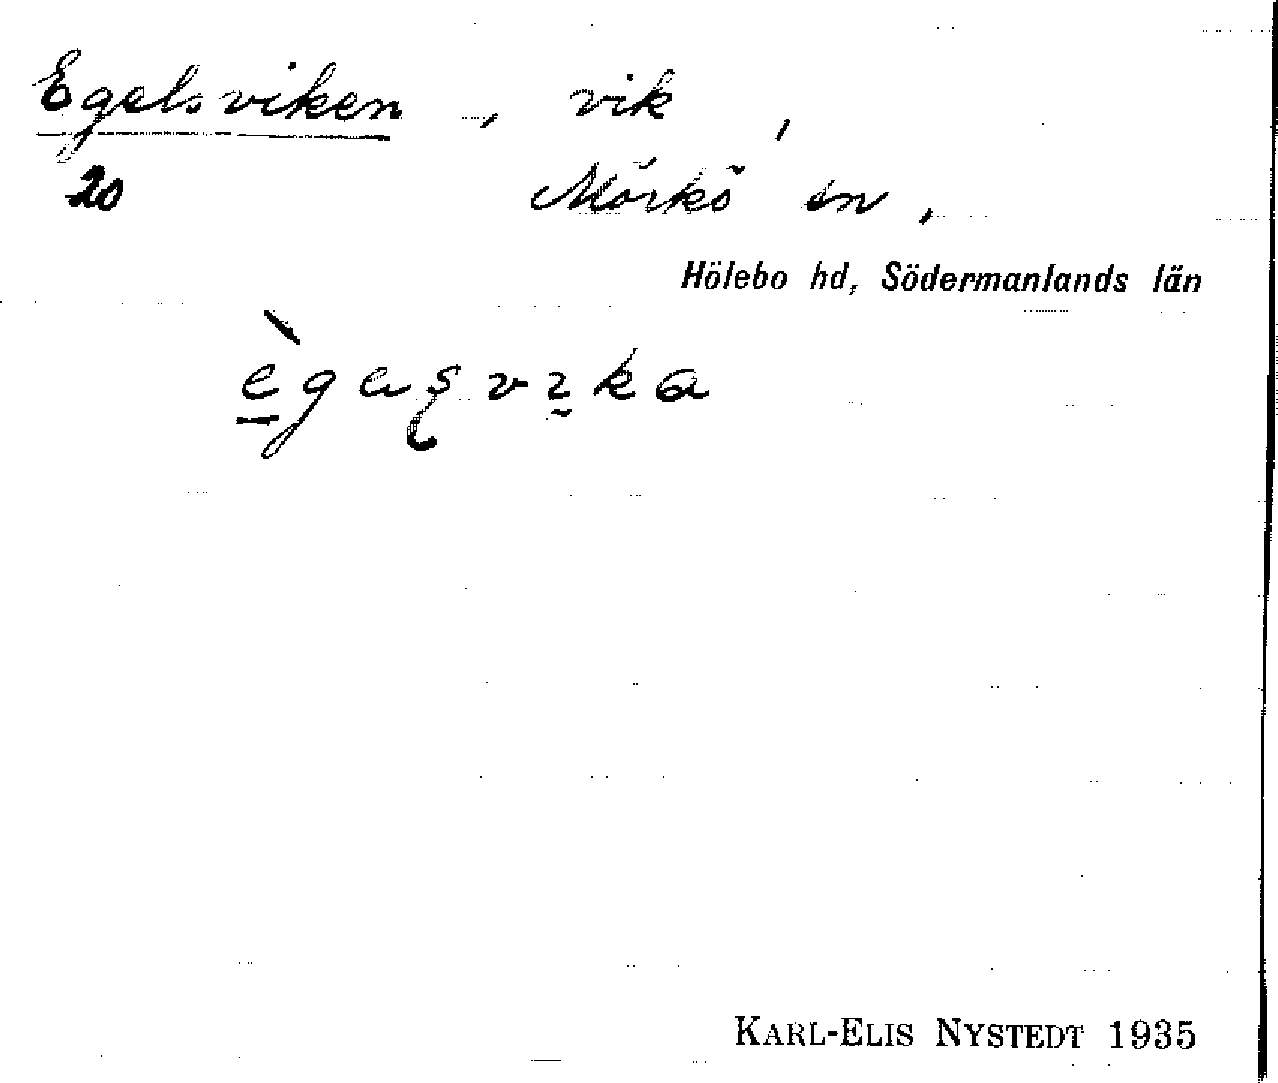 Egelsviken, vik,
20 Mörkö sn,
Hölebo hd, Södermanlands län
KARL-ELIS NYSTEDT 1935